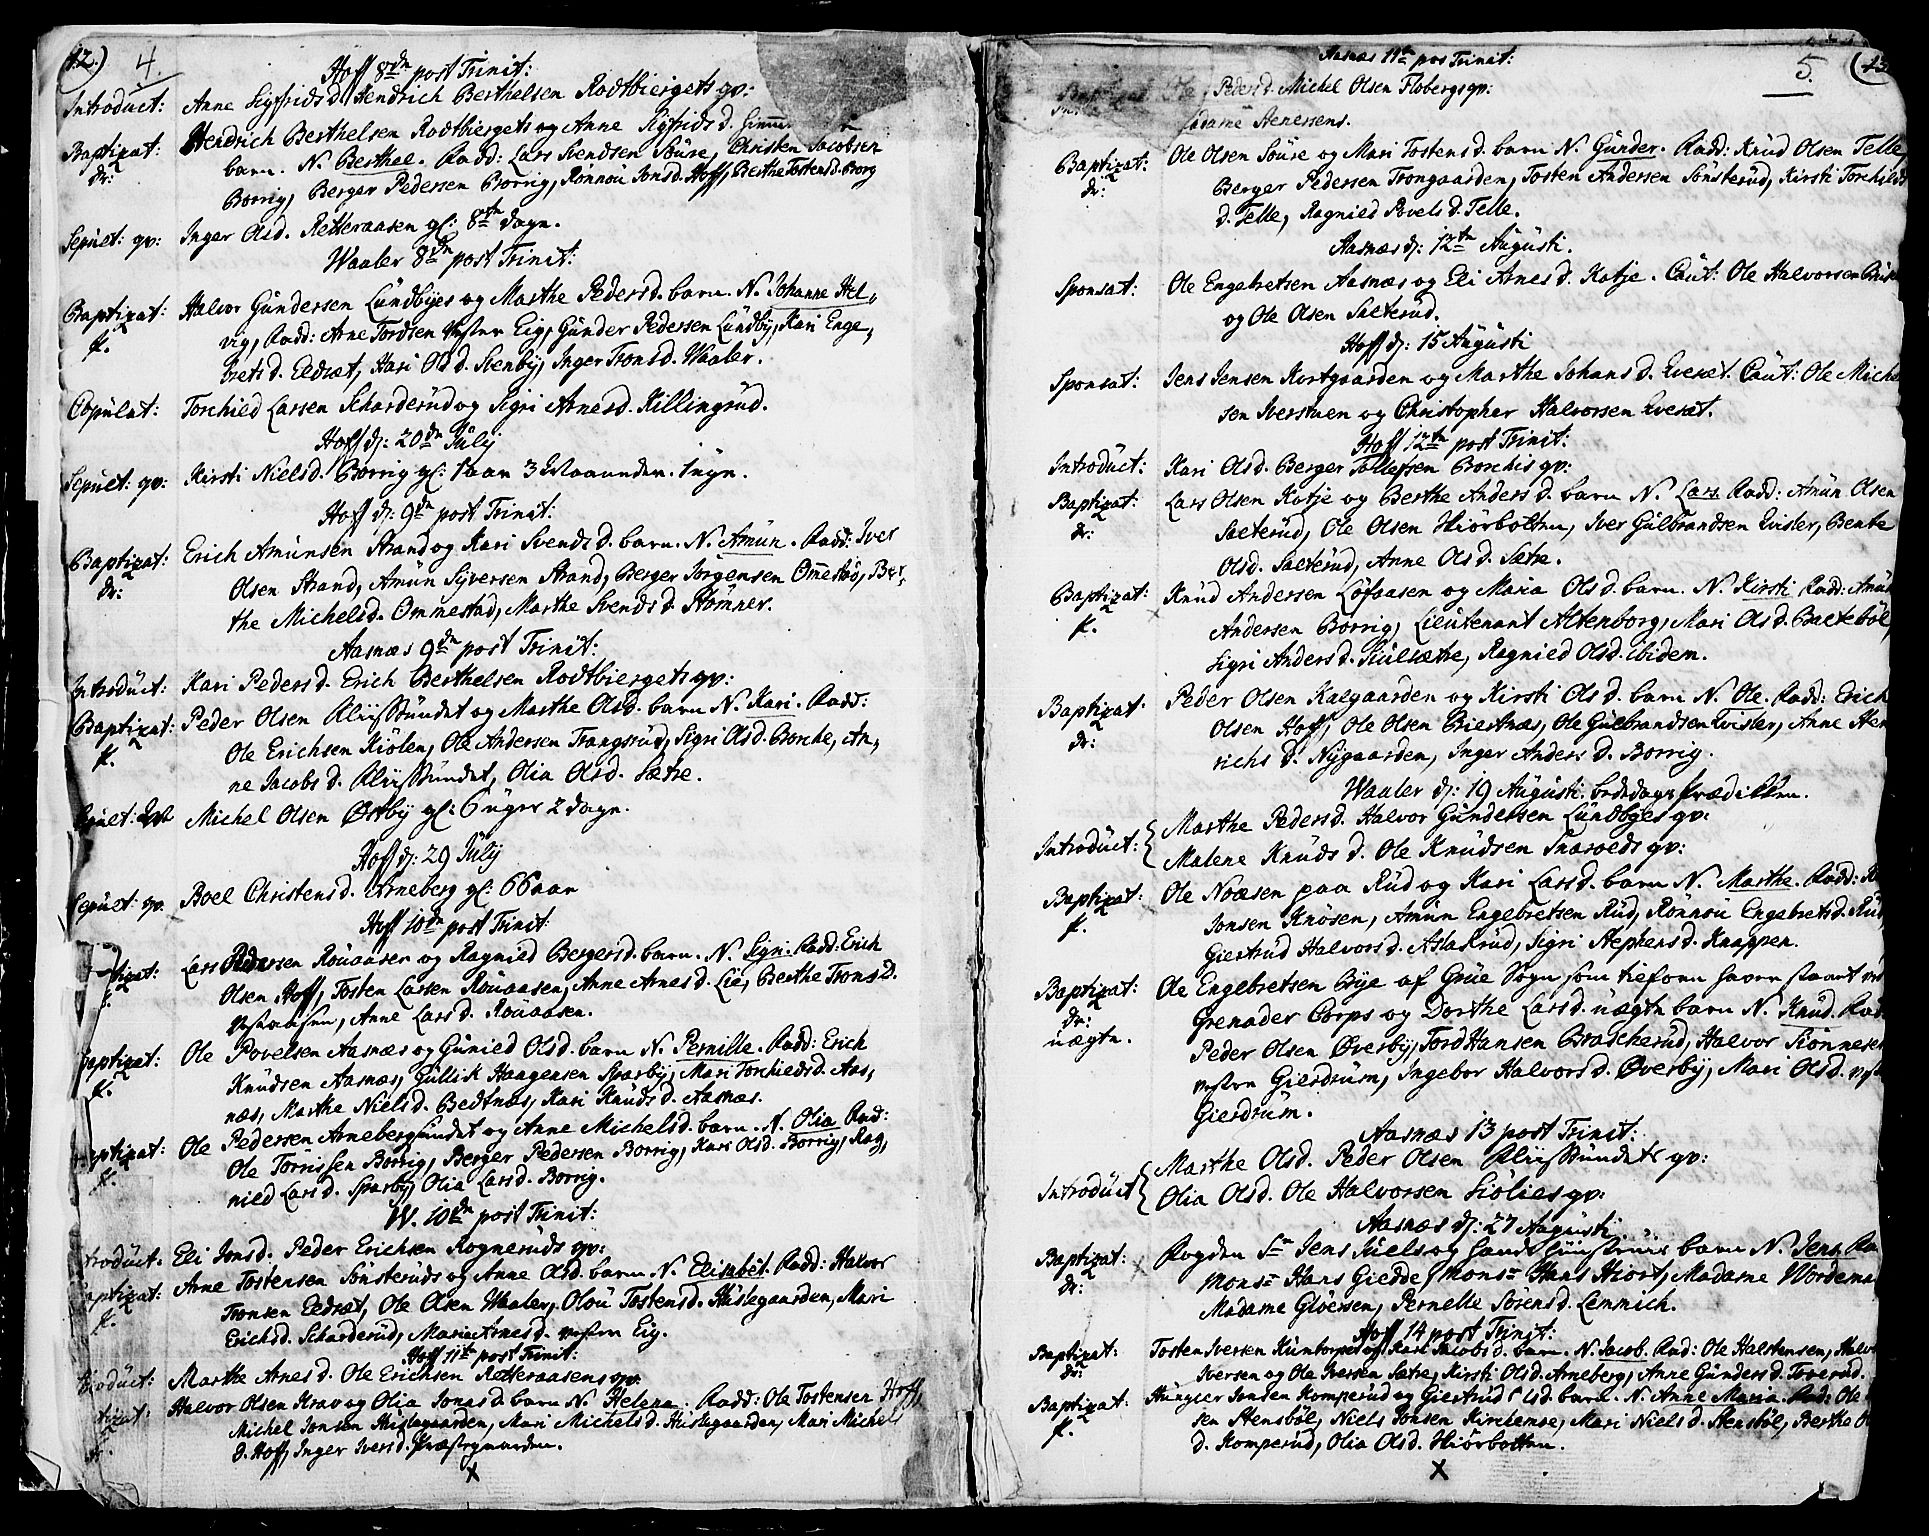 12.) 4.
Hoff 8de post Trinit:
Introduct: Anne Sigfrids d. Hendrich Berthelsen Rodtbiergets qv:
Baptizat: Hendrich Berthelsen Rodtbiergets og Anne Sigfrids d.
dr: barn. N. Berthel. Fadd: Lars Svendsen Soure, Christen Jacobsen
Borrig, Berger Pedersen Borrig, Ronnou Jons d. Hoff, Berthe Tostens d. Borg
Sepult: qv: Inger Ols d. Retteraasen gl: 8te dage.
Waaler 8de post Trinit:
Baptizat: Halvor Gundersen Lundbyes og Marthe Peders d. barn. N. Johanne Hel„
f. vig, Fadd: Arne Tordsen Vestre Eig, Gunder Pedersen Lundby, Kari Enge„
brets d. Eldræt, Kari Ols d. Svenby, Inger Trons d. Waaler.
Copulat: Torchild Larsen Scharderud og Sigri Arnes d. Killingrud.
Hoff d: 20de July
Sepult: qv: Kirsti Niels d. Borrig gl: 1 aar 3 Maaneder 1 uge.
Hoff d: 9de post Trinit:
Baptizat: Erich Amunsen Strand og Kari Svends d. barn. N. Amun. Fadd: Iver
dr: Olsen Strand, Amun Syversen Strand, Berger Jorgensen Omestad, Ber„
the Michels d. Ommestad, Marthe Svends d. Stömner.
Aasnæs 9de post Trinit:
Introduct: Kari Peders d. Erich Berthelsen Rodtbiergets qv:
Baptizat: Peder Olsen Kliisstundet og Marthe Ols d. barn N. Kari. Fadd:
f. Ole Erichsen Kiölen, Ole Andersen Trangsrud, Sigri Ols d. Borche, An„
ne Jacobs d. Kliisstundet, Olia Ols d. Sætre.
Michel Olsen Østby gl: 6 uger 2 dage.
Hoff d: 29 July
Sepult: qv. Boel Christens d. Arneberg gl: 66 aar
Hoff 10de post Trinit:
Lars Pedersen Rouaasen og Ragnild Bergers d. barn. N. Sigri. Fadd: Erich
f. Olsen Hoff, Tosten Larsen Rouaasen, Anne Arnes d. Lie, Berthe Trons d.
Anne Lars d. Rouaasen.
Baptizat: Ole Povelsen Aasnæs og Gunild Ols d. barn N. Pernille. Fadd: Erich
f. Knudsen Aasnæs, Gullik Haagensen Sparby, Mari Torchilds d. Aas„
næs, Marthe Niels d. Bedtnæs, Kari Knuds d. Aasnæs.
Baptizat: Ole Pedersen Arnebergsundet og Anne Michels d. barn. N. Olia Fad:
f. Ole Törrissen Borrig, Berger Pedersen Borrig, Kari Ols d. Borrig, Rag„
nild Lars d. Sparby, Olia Lars d. Borrig.
W. 10de post Trinit:
Introduct. Eli Jons d. Peder Erichsen Rogneruds qv:
Baptizat: Arne Tostensen Sönsteruds og Anne Ols d. barn. N. Elisabet. Fadd: Halvor
f. Tronsen Eldræt, Ole Olsen Waaler, Olou Tostens d. Huslegaarden, Mari
Erichs d. Scharderud, Maria Arnes d. Vestre Eig.
Hoff 11te post Trinit:
Marthe Arnes d. Ole Erichsen Retteraasens qv:
Halvor Olsen Krav og Olia Jonas d. barn N. Helena. Fadd: Ole Tostensen Hoff,
Michel Jonsen Huslegaarden, Mari Michels d. Huslegaarden, Mari Michels
d. Hoff, Inger Ivers d. Præstegaarden.
x
5. (13
Aasnæs 11te post Trinit:
Peders d. Michel Olsen Flobergs qv:
Stenersens.
Baptizat: Ole Olsen Soure og Mari Tostens d. barn N. Gunder. Fadd: Knud Olsen Telle,
dr: Berger Pedersen Trongaarden, Tosten Andersen Sönsterud, Kirsti Torchilds
d. Telle, Ragnild Povels d. Telle.
Aasnæs d: 12te Augusti.
Sponsat: Ole Engebretsen Aasnæs og Eli Arnes d. Kotje. Caut: Ole Halvorsen
og Ole Olsen Sæterud.
Hoff d: 15 Augusti
Sponsat: Jens Jensen Kortgaarden og Marthe Johans d. Qveset. Caut: Ole Michel
sen Iverstuen og Christopher Halvorsen Qveset.
Hoff 12te post Trinit:
Introduct: Kari Ols d. Berger Tollefsen Borchis qv:
Baptizat: Lars Olsen Kotje og Berthe Anders d. barn N. Lars. Fadd: Amun Olsen
dr: Sæterud, Ole Olsen Hiörbotten, Iver Gulbrandsen Qvisler, Bente
Ols d. Sæterud, Anne Ols d. Sætre.
Baptizat: Knud Andersen Löfaasen og Maria Ols d. barn. N. Kirsti Fadd: Amun
f. Andersen Borrig, Lieutenant Altenborg, Mari Ols d. Bæteböl,
Sigri Anders d. Kiulsætre, Ragnild Ols d. ibidem.
Baptizat Peder Olsen Kalgaarden og Kirsti Ols d. barn N. Ole. Fadd: Erich
dr: Olsen Hoff, Ole Olsen Brestnæs, Ole Gulbrandsen Qvisler, Anne Hen
richs d. Nygaarden, Inger Anders d. Borrig.
Waaler d: 19 Augusti: bededags Prædikken.
Introduct: { Marthe Peders d. Halvor Gundersen Lundbyes qv:
Malene Knuds d. Ole Knudsen Snaroeds qv:
Baptizat: Ole Noæsen paa Rud og Kari Lars d. barn N. Marthe. Fadd:
f. Jonsen Knösen, Amun Engebretsen Rud, Rönnou Engebrets d. Rud,
Giertrud Halvors d. Aslakrud, Sigri Stephens d. Knappen.
Baptizat: Ole Engebretsen Bye af Grue Sogn som tieforn staaet ved
dr: Grenader Corps og Dorthe Lars d. uægte barn N. Knud. Fad
uægte. Peder Olsen Øverby, Tord Hansen Braskerud, Halvor Siönnesen
vestre Gierdrum, Ingebor Halvors d. Øverby, Mari Ols d. vest
Gierdrum.
Aasnæs 13 post Trinit:
Introduct { Marthe Ols d. Peder Olsen Kliisstundets qv:
Olia Ols d. Ole Halvorsen Siölies qv:
Aasnæs d: 27 Augusti.
Baptizat: Fogden Sr Jens Juels og hands Hustrues barn N. Jens. Fa
dr: Monsr Hans Giedde, Monsr Hans Hiort, Madame Wordema
Madame Glöersen, Pernelle Sörens d. Lemmich.
Hoff 14 post Trinit:
Baptizat: Tosten Iversen Kuntorpet og Kari Jacobs d. barn. N. Jacob. Fad: Ole Halstensen, Halvor
dr: Iversen og Ole Iversen Sætre, Kirsti Ols d. Arneberg, Anne Gunders d. Toverud.
Baptizat: Jonsen Komperud og Giertrud Ols d. barn. N. Anne Maria. Fad: Ole
f. sen Stensböl, Niels Jonsen Kirchense, Mari Niels d. Stensböl, Berthe O
d. Komperud, Olia Ols d. Hiörbotten.
x